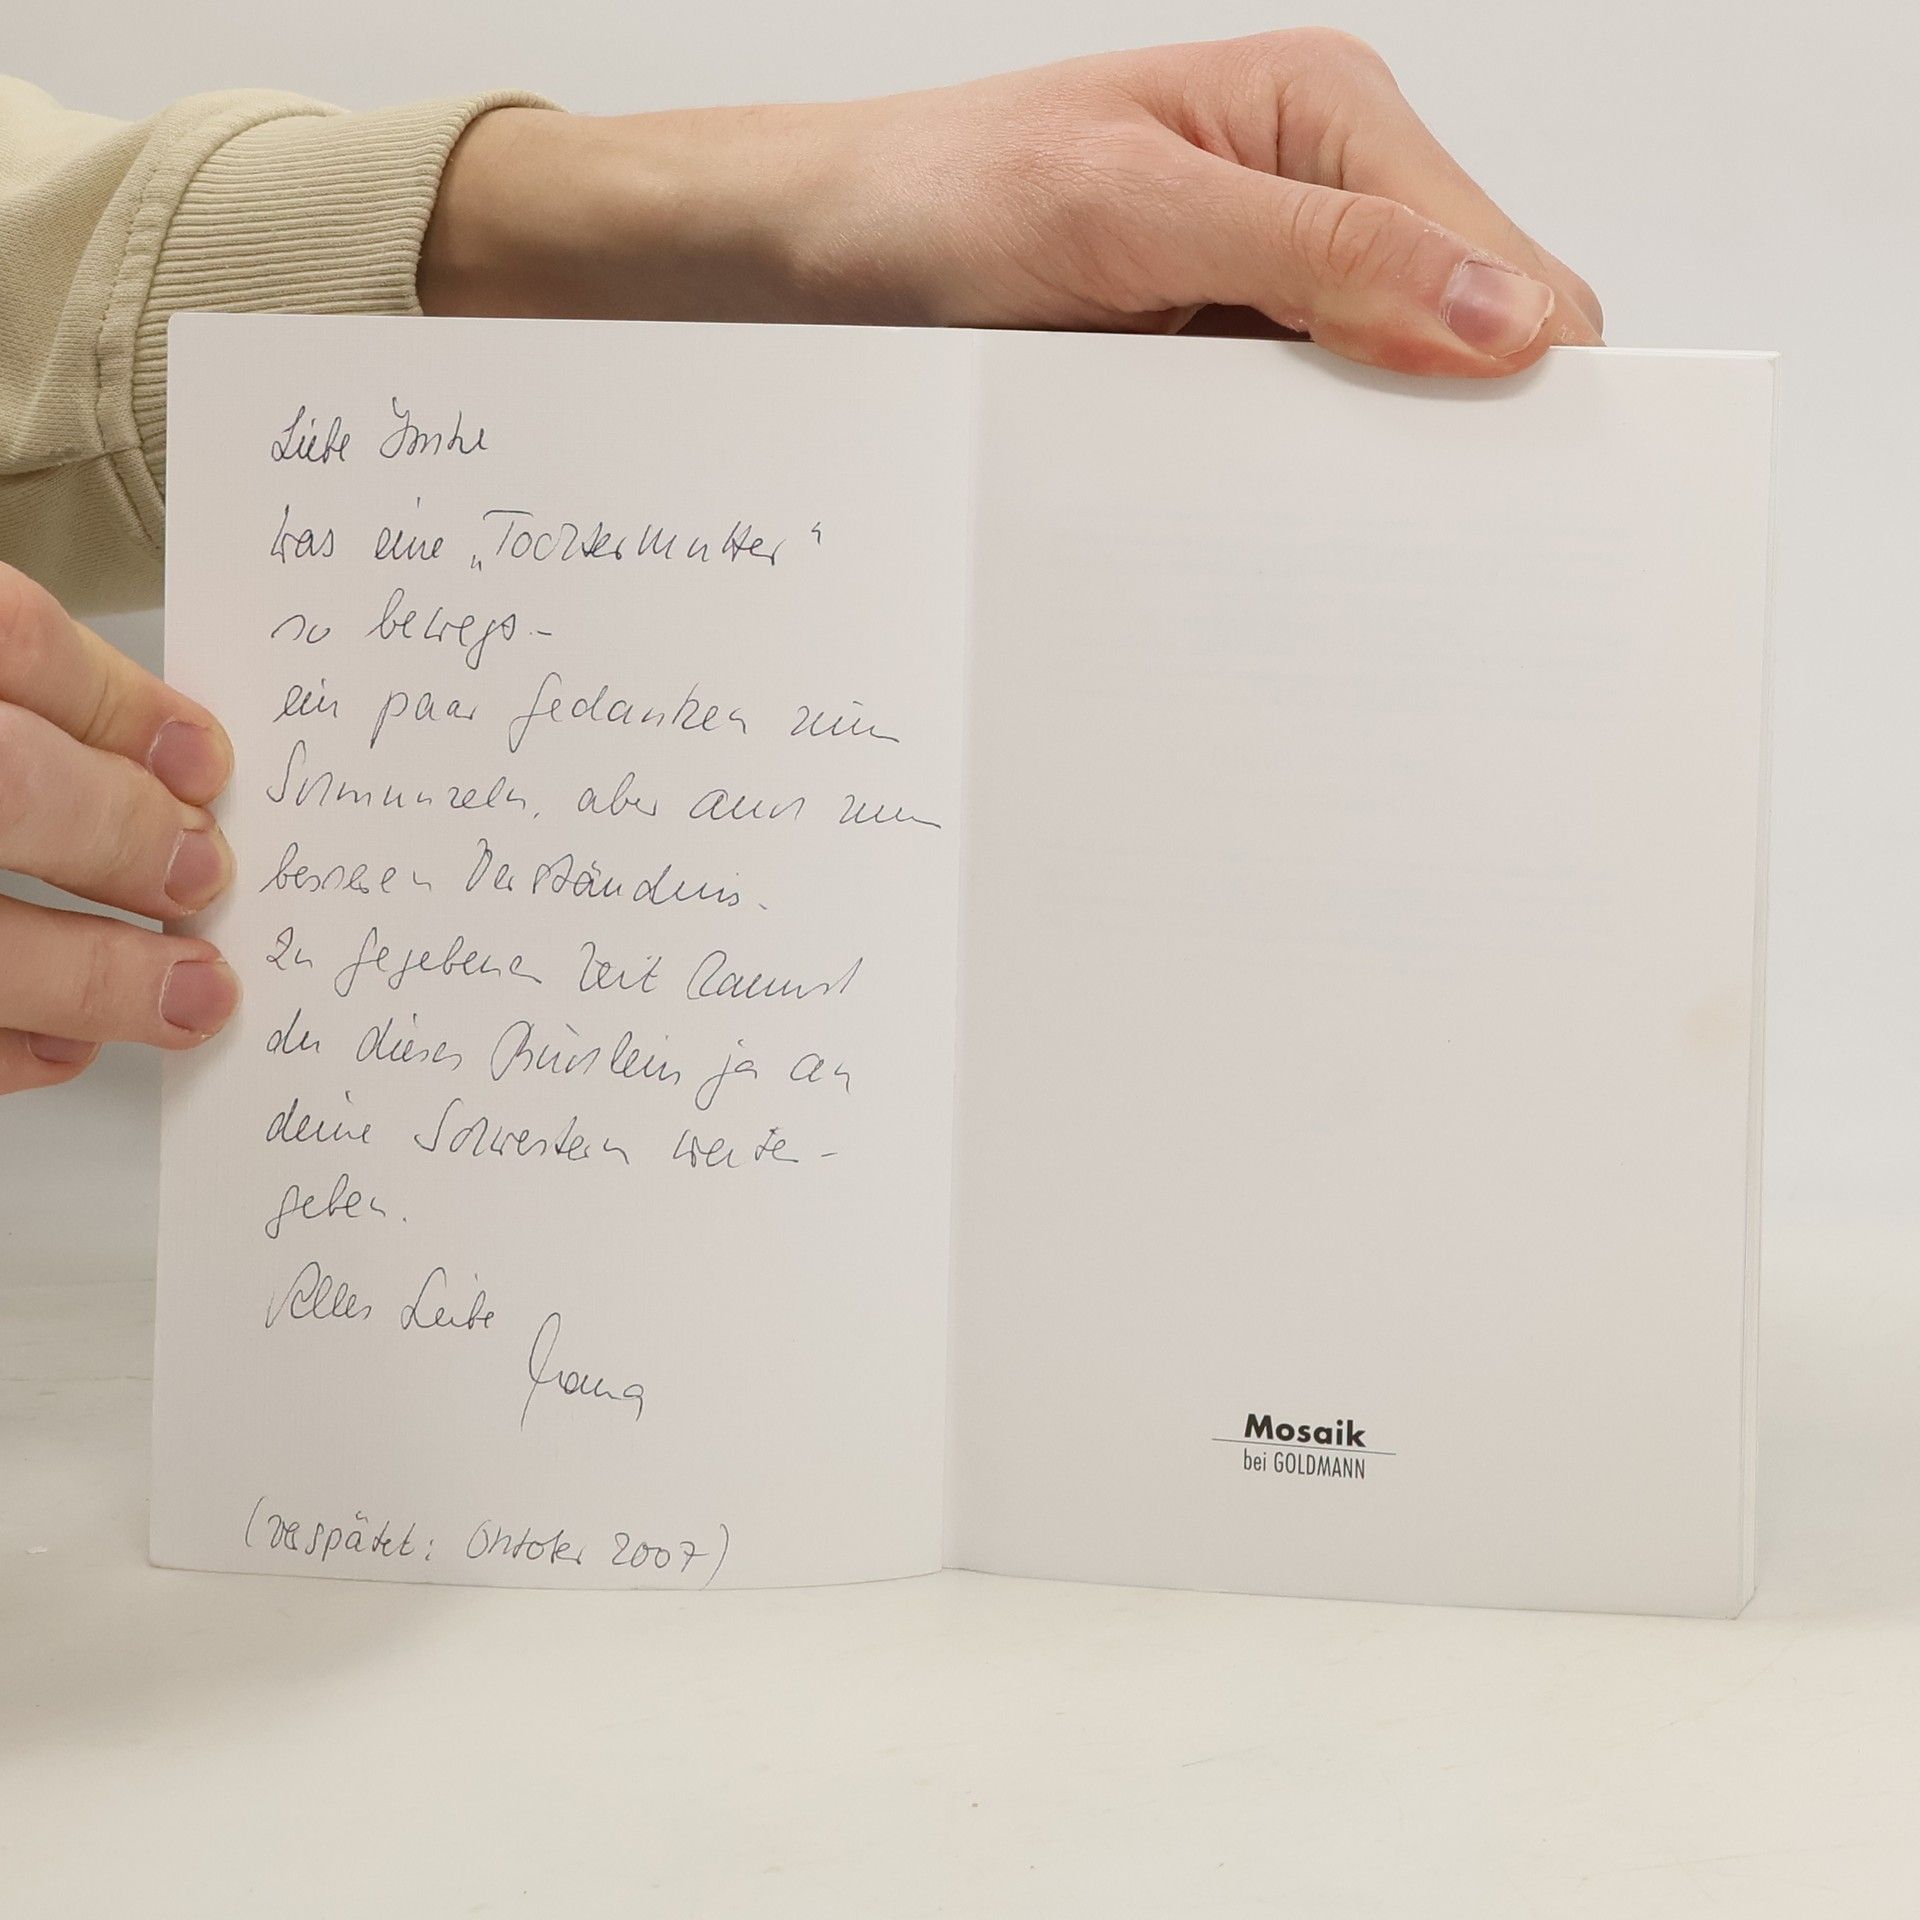 Liebe Imke
was eine „Tochtermutter“
so bewegt –
ein paar Gedanken zum
Schmunzeln, aber auch zum
besseren Verständnis.
Zu gegebener Zeit kannst
du dieses Büchlein ja an
deine Schwestern weiter-
geben.
Alles Liebe
Mama
(verspätet: Oktober 2007)
Mosaik
bei GOLDMANN